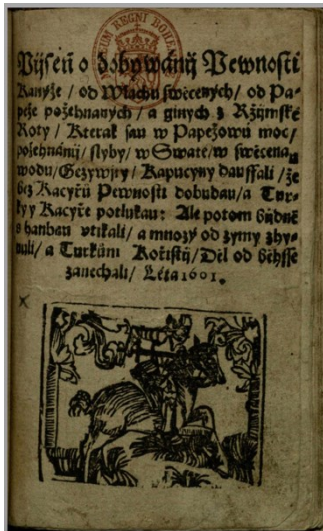 Pijseň o dobywánij Pewnosti
Kanyže / od Wlachů swěcených / od Pa-
peže požehnaných / a giných z Ržijmské
Roty / Kterak sau w Papežowu moc /
požehnánij / sliby / w Swaté / w swěcenau
wodu / Gezywity / Kapucyny dauffali / že
bez Kacýřů Pewnosti dobudau / a Tur-
ky y Kacýře potlukau: Ale potom bijdně
s hanbau vtikali / a mnozý od zymy zhy-
nuli / a Turkům Kořistij / Děl od běhsse
zanechali / Léta 1601.
MUSEUM REGNI BOHEM